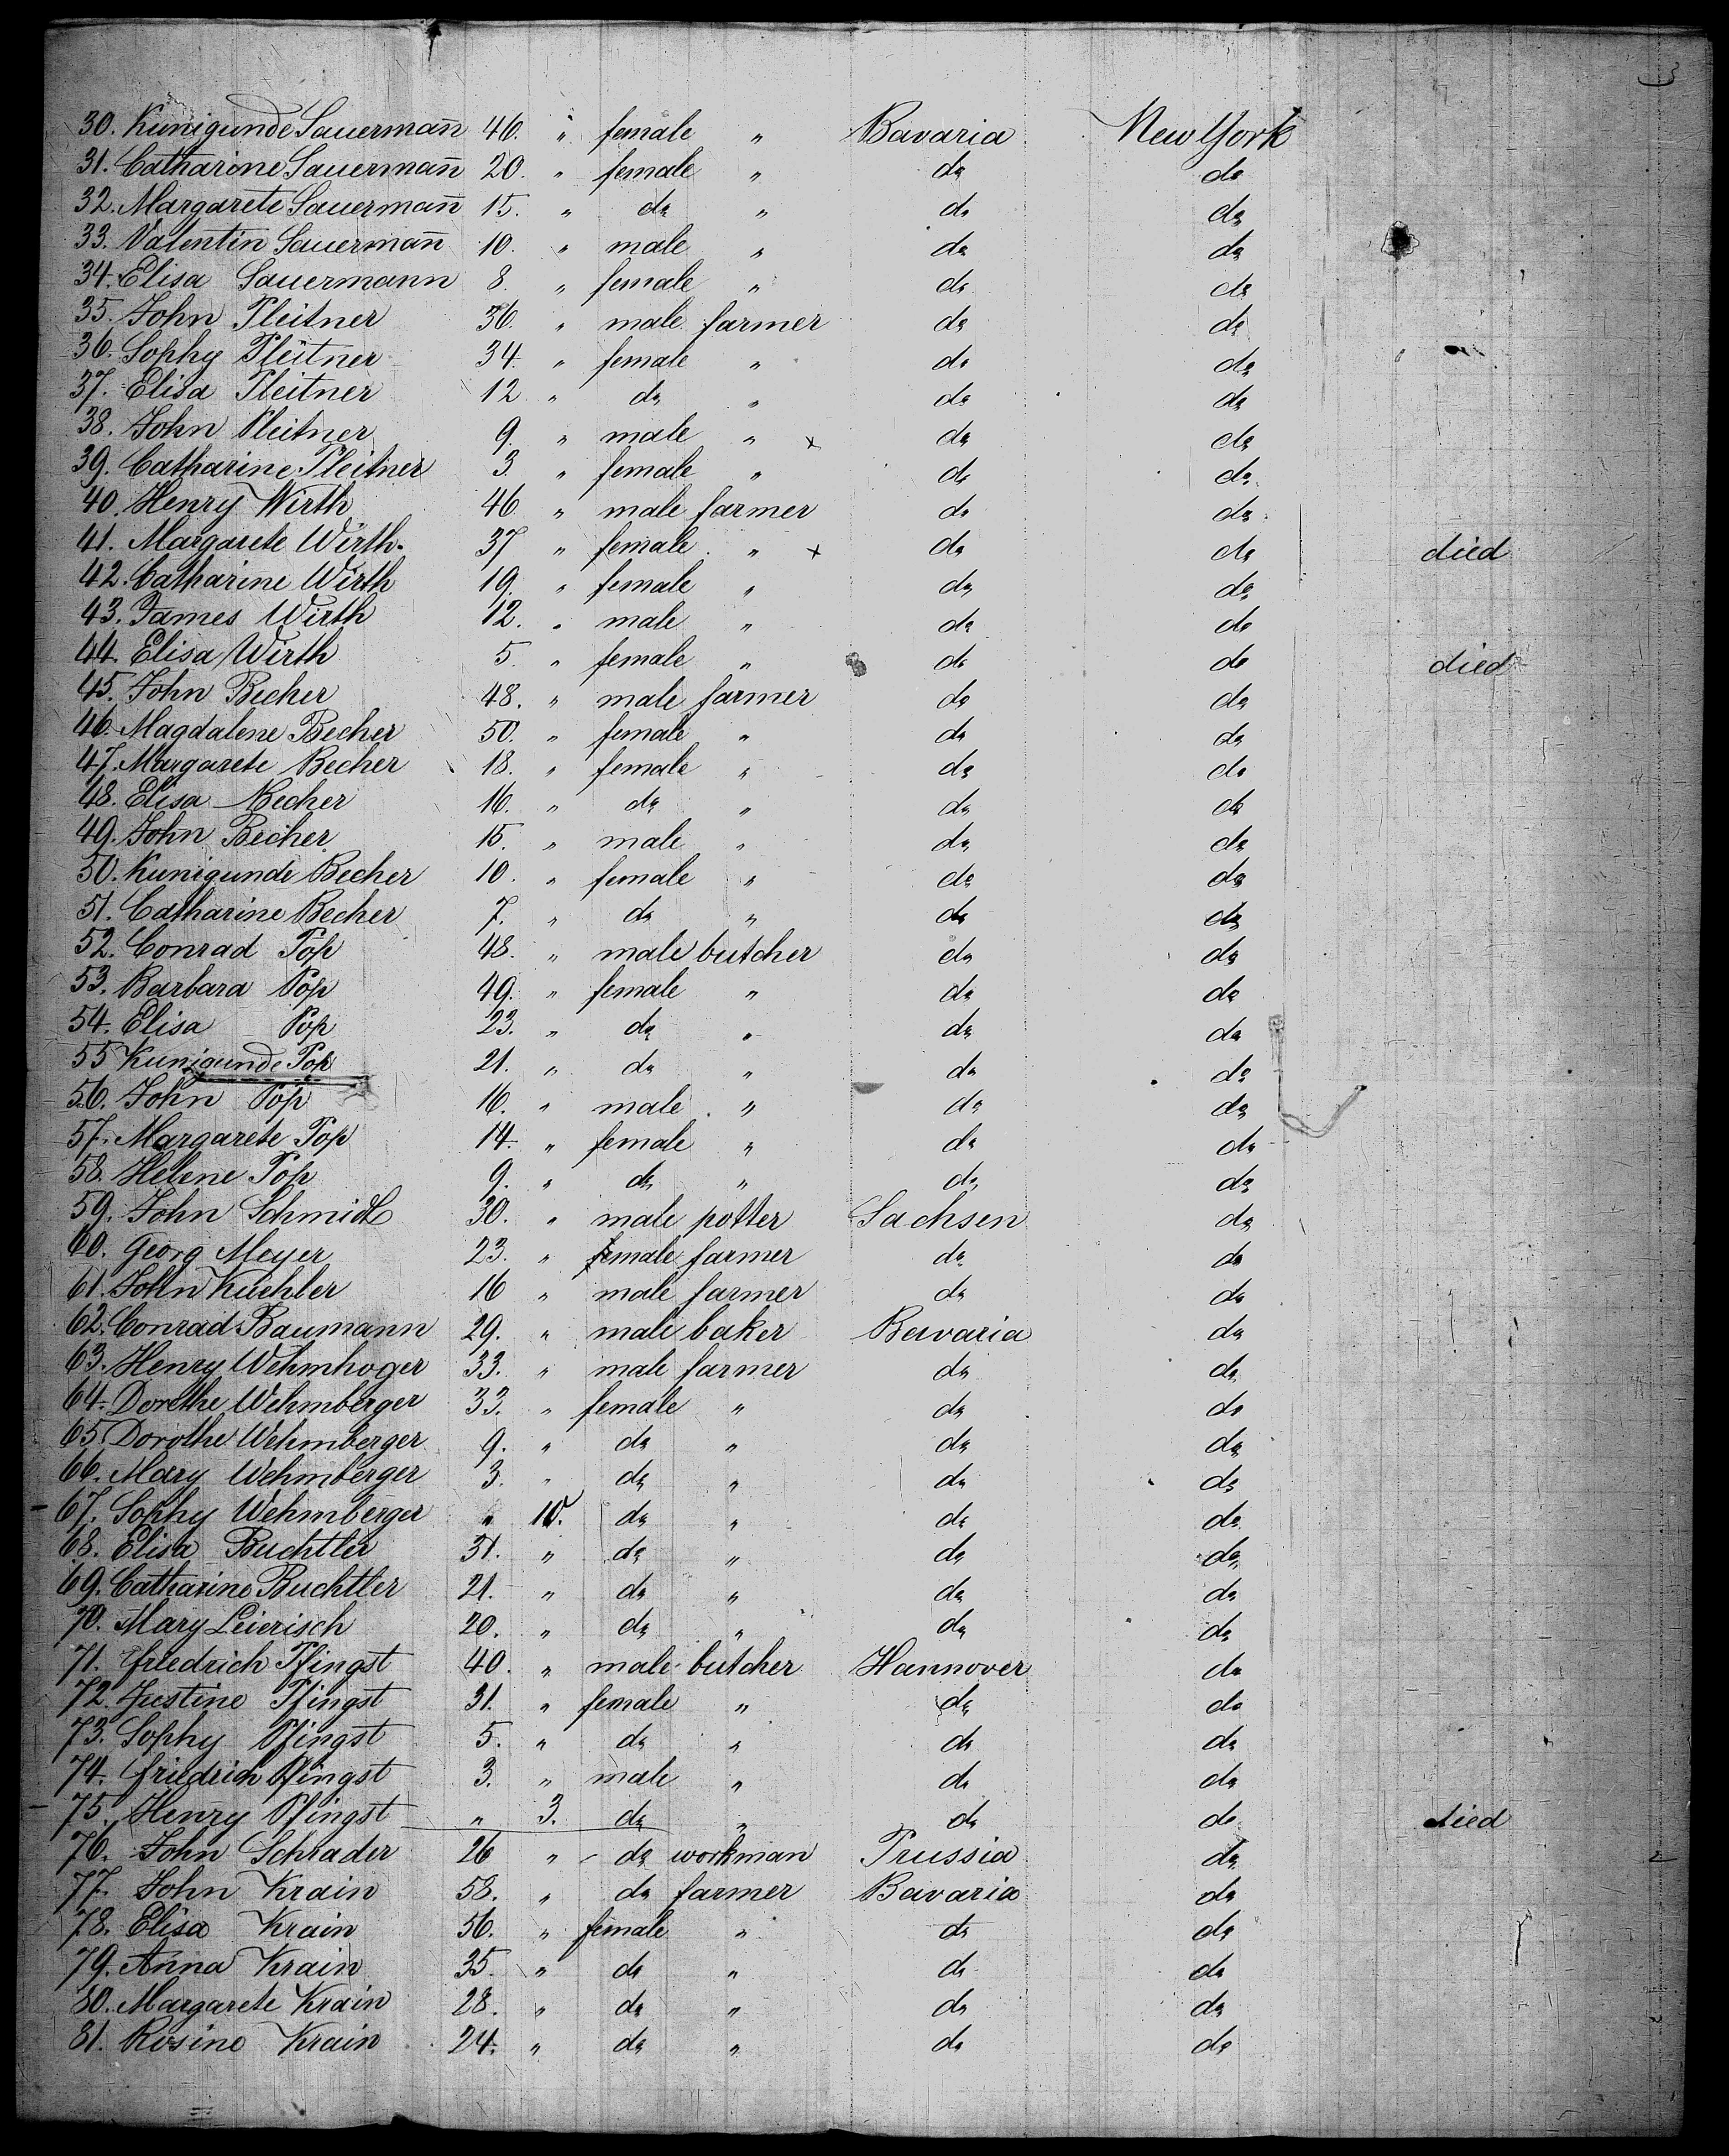 30. Kunigunde Sauermañ 46. " female " Bavaria New York
31. Catharine Sauermañ 20. " female " do do
32. Margarete Sauermañ 15. " do " do do
33. Valentin Sauermañ 10. " male " do do
34. Elisa Sauermann 8. " female " do do
35. John Pleitner 36. " male farmer do do
36. Sophy Pleitner 34. " female " do do
37. Elisa Pleitner 12 " do " do do
38. John Pleitner 9. " male " x do do
39. Catharine Pleitner 3 " female " do do
40. Henry Wirth 46 " male farmer do do
41. Margarete Wirth. 37 " female " x do do died
42. Catharine Wirth 19. " female " do do
43. James Wirth 12. " male " do do
44. Elisa Wirth 5. " female " do do died
45. John Becher 48. " male farmer do do
46. Magdalene Becher 50. " female " do do
47. Margarete Becher 18. " female " do do
48. Elisa Becher 16. " do " do do
49. John Becher 15. " male " do do
50. Kunigunde Becher 10. " female " do do
51. Catharine Becher 7. " do " do do
52. Conrad Pop 48. " male butcher do do
53. Barbara Pop 49. " female " do do
54. Elisa Pop 23. " do " do do
55 Kunigunde Pop 21. " do " do do
56. John Pop 16. " male " do do
57. Margarete Pop 14. " female " do do
58. Helene Pop 9. " do " do do
59. John Schmidt 30. " male potter Sachsen do
60. Georg Meyer 23. " male farmer do do
61. John Kuehler 16 " male farmer do do
62. Conrad Baumann 29. " male baker Bavaria do
63. Henry Wehmhoger 33. " male farmer do do
64. Dorothe Wehmberger 33. " female " do do
65 Dorothe Wehmberger 9. " do " do do
66. Mary Wehmberger 3. " do " do do
67. Sophy Wehmberger " 10. do " do do
68. Elisa Buchtler 31. " do " do do
69. Catharine Buchtler 21. " do " do do
70. Mary Leierisch 20. " do " do do
71. Friedrich Pfingst 40. " male butcher Hannover do
72. Justine Pfingst 31. " female " do do
73. Sophy Pfingst 5. " do " do do
74. Friedrich Pfingst 3. " male " do do
75. Henry Pfingst " 3. do " do do died
76. John Schrader 26 " do workman Prussia do
77. John Krain 58. " do farmer Bavaria do
78. Elisa Krain 56. " female " do do
79. Anna Krain 35. " do " do do
80. Margarete Krain 28. " do " do do
81. Rosine Krain 24. " do " do do